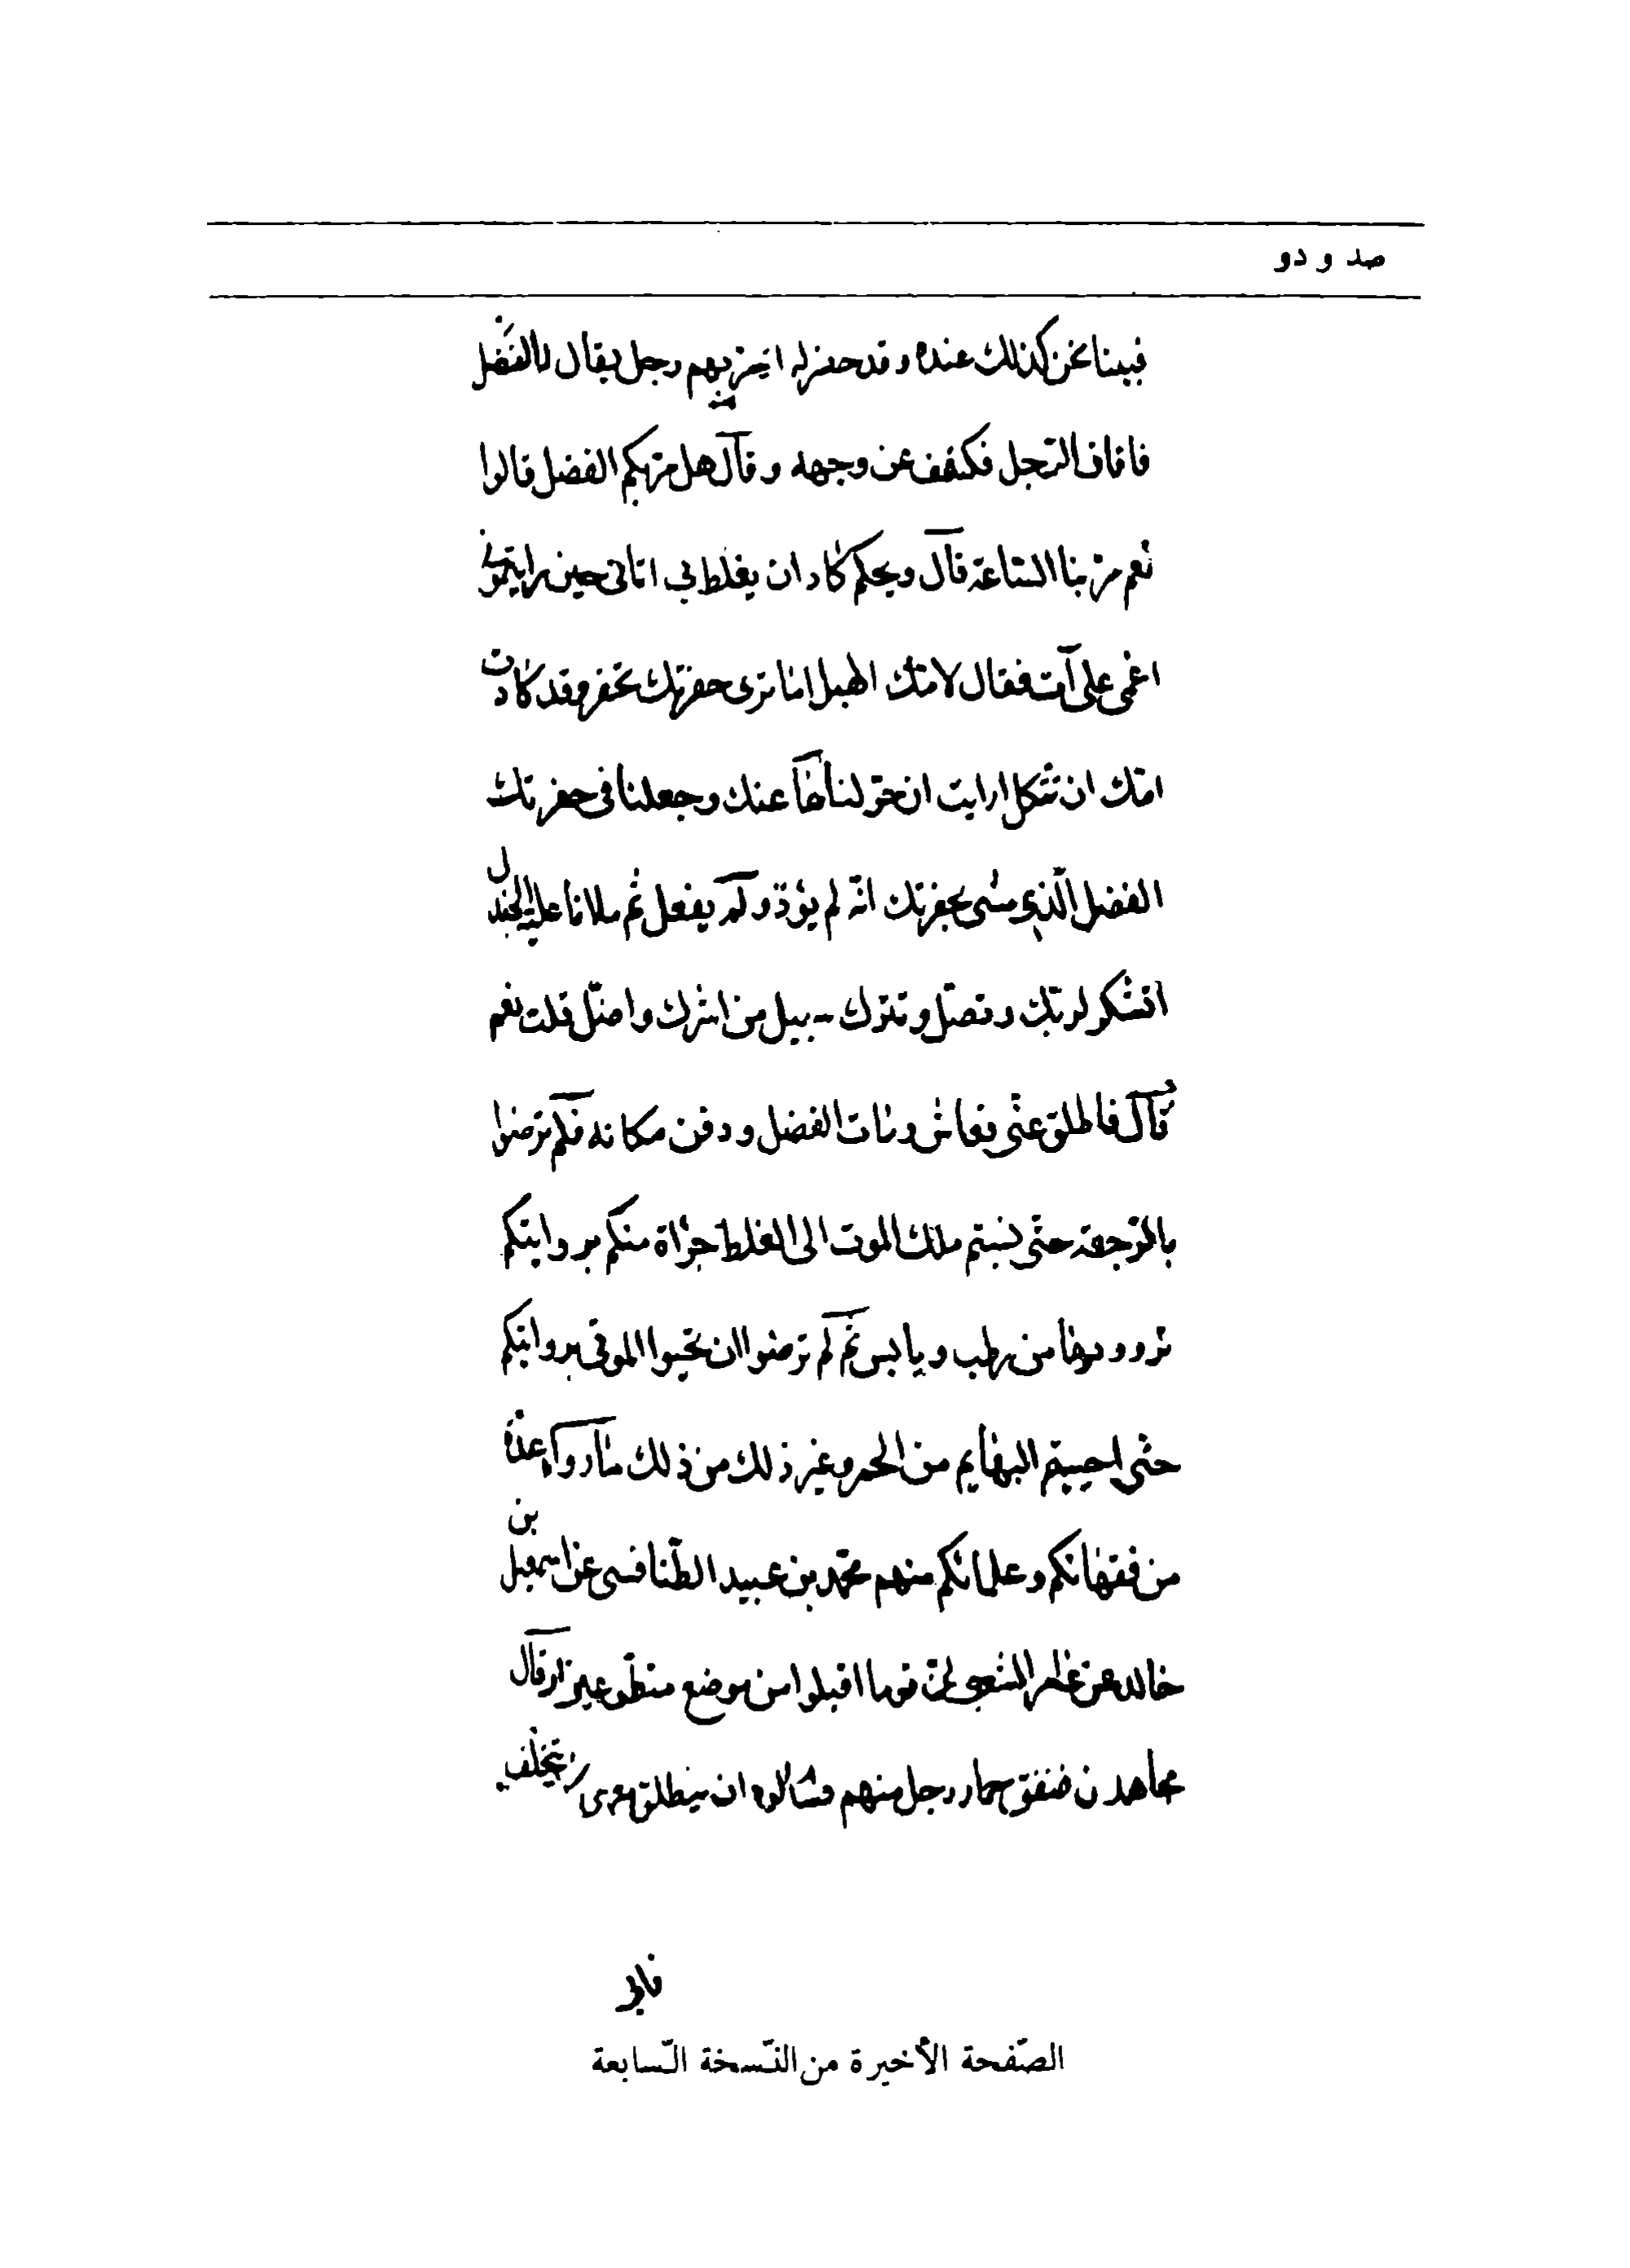 صد و دو
فبينا نحن كذلك عنده و قد حضر له اذ مر بهم رجل يقال له الفضل
فافاق الرّجل فكشف عن وجهه و قال هل مرّ بكم الفضل قالوا
نعم مرّ بنا السّاعة قال ويحكم كاد ان يغلط بى اتانى حين رايتمونى
اغمى علىّ آت فقال لامّك الهبل اما ترى حفرتك تحفر و قد كادت
امّك ان تثكل ارايت ان حوّلناها عنك و جعلنا فى حفرتك
الفضل الّذى مشى بحفرتك انّه لم يؤدّ و لم يفعل ثم ملانا عليه الجندل
اتشكر لربّك و تصلّ و تترك سبيل من اشرك و اضلّ قلت نعم
قال فاطلق عنّى فعاش و مات الفضل و دفن مكانه فلم ترضوا
بالرّجعة حتّى نسبتم ملك الموت الى الغلط جرأة منكم بروايتكم
من رطب و يابس ثم لم ترضوا ان تحيوا الموتى بروايتكم
حتّى احييتم البهايم من الحمر و غير ذلك من ذلك ما رواه عدّة
من فقهائكم و علمائكم منهم محمّد بن عبيد الطّنافسى عن اسمعيل بن
خالد عن عامر الشّعبى انّ قوما اقبلوا من موضع متطوّعين او قال
مجاهدين فنفق حمار رجل منهم فسالوه ان ينطلق معهم يتخلّف
فابى
الصّفحة الأخيرة من النّسخة السّابعة